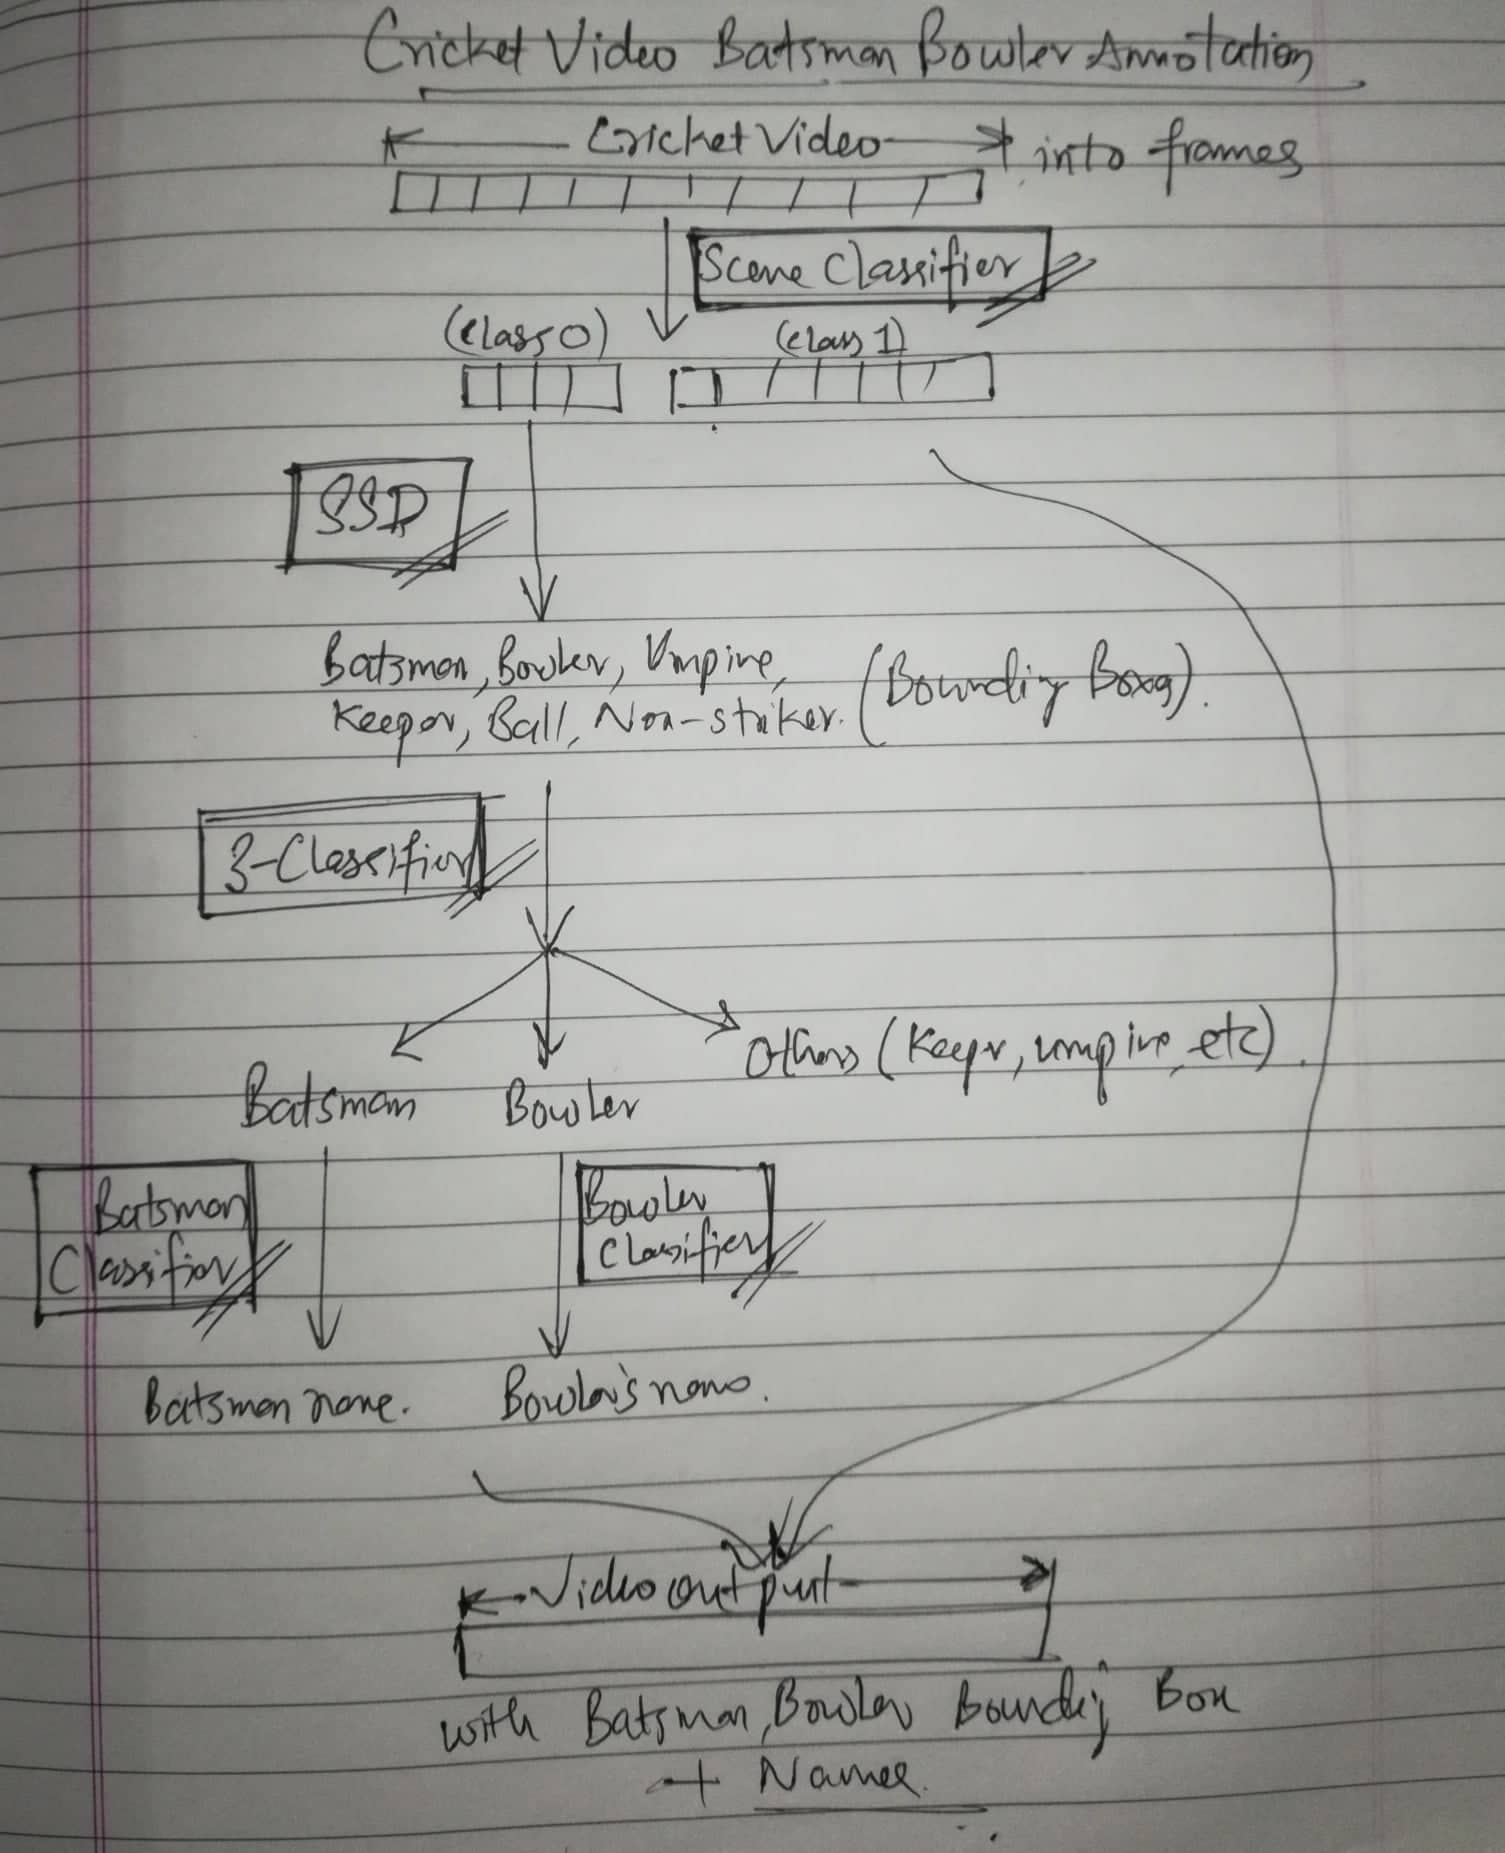 Cricket Video Batsman Bowler Annotation
Cricket Video into frames
Scene Classifier
(class 0) (class 1)
SSD
Batsman, Bowler, Umpire,
Keeper, Ball, Non-striker. (Bounding Boxes).
3-Classifier
Others (Keeper, umpire, etc).
Batsman Bowler
Batsman
Classifier
Bowler
Classifier
Batsman name. Bowler's name.
Video output
with Batsman, Bowler Bounding Box
+ Names.